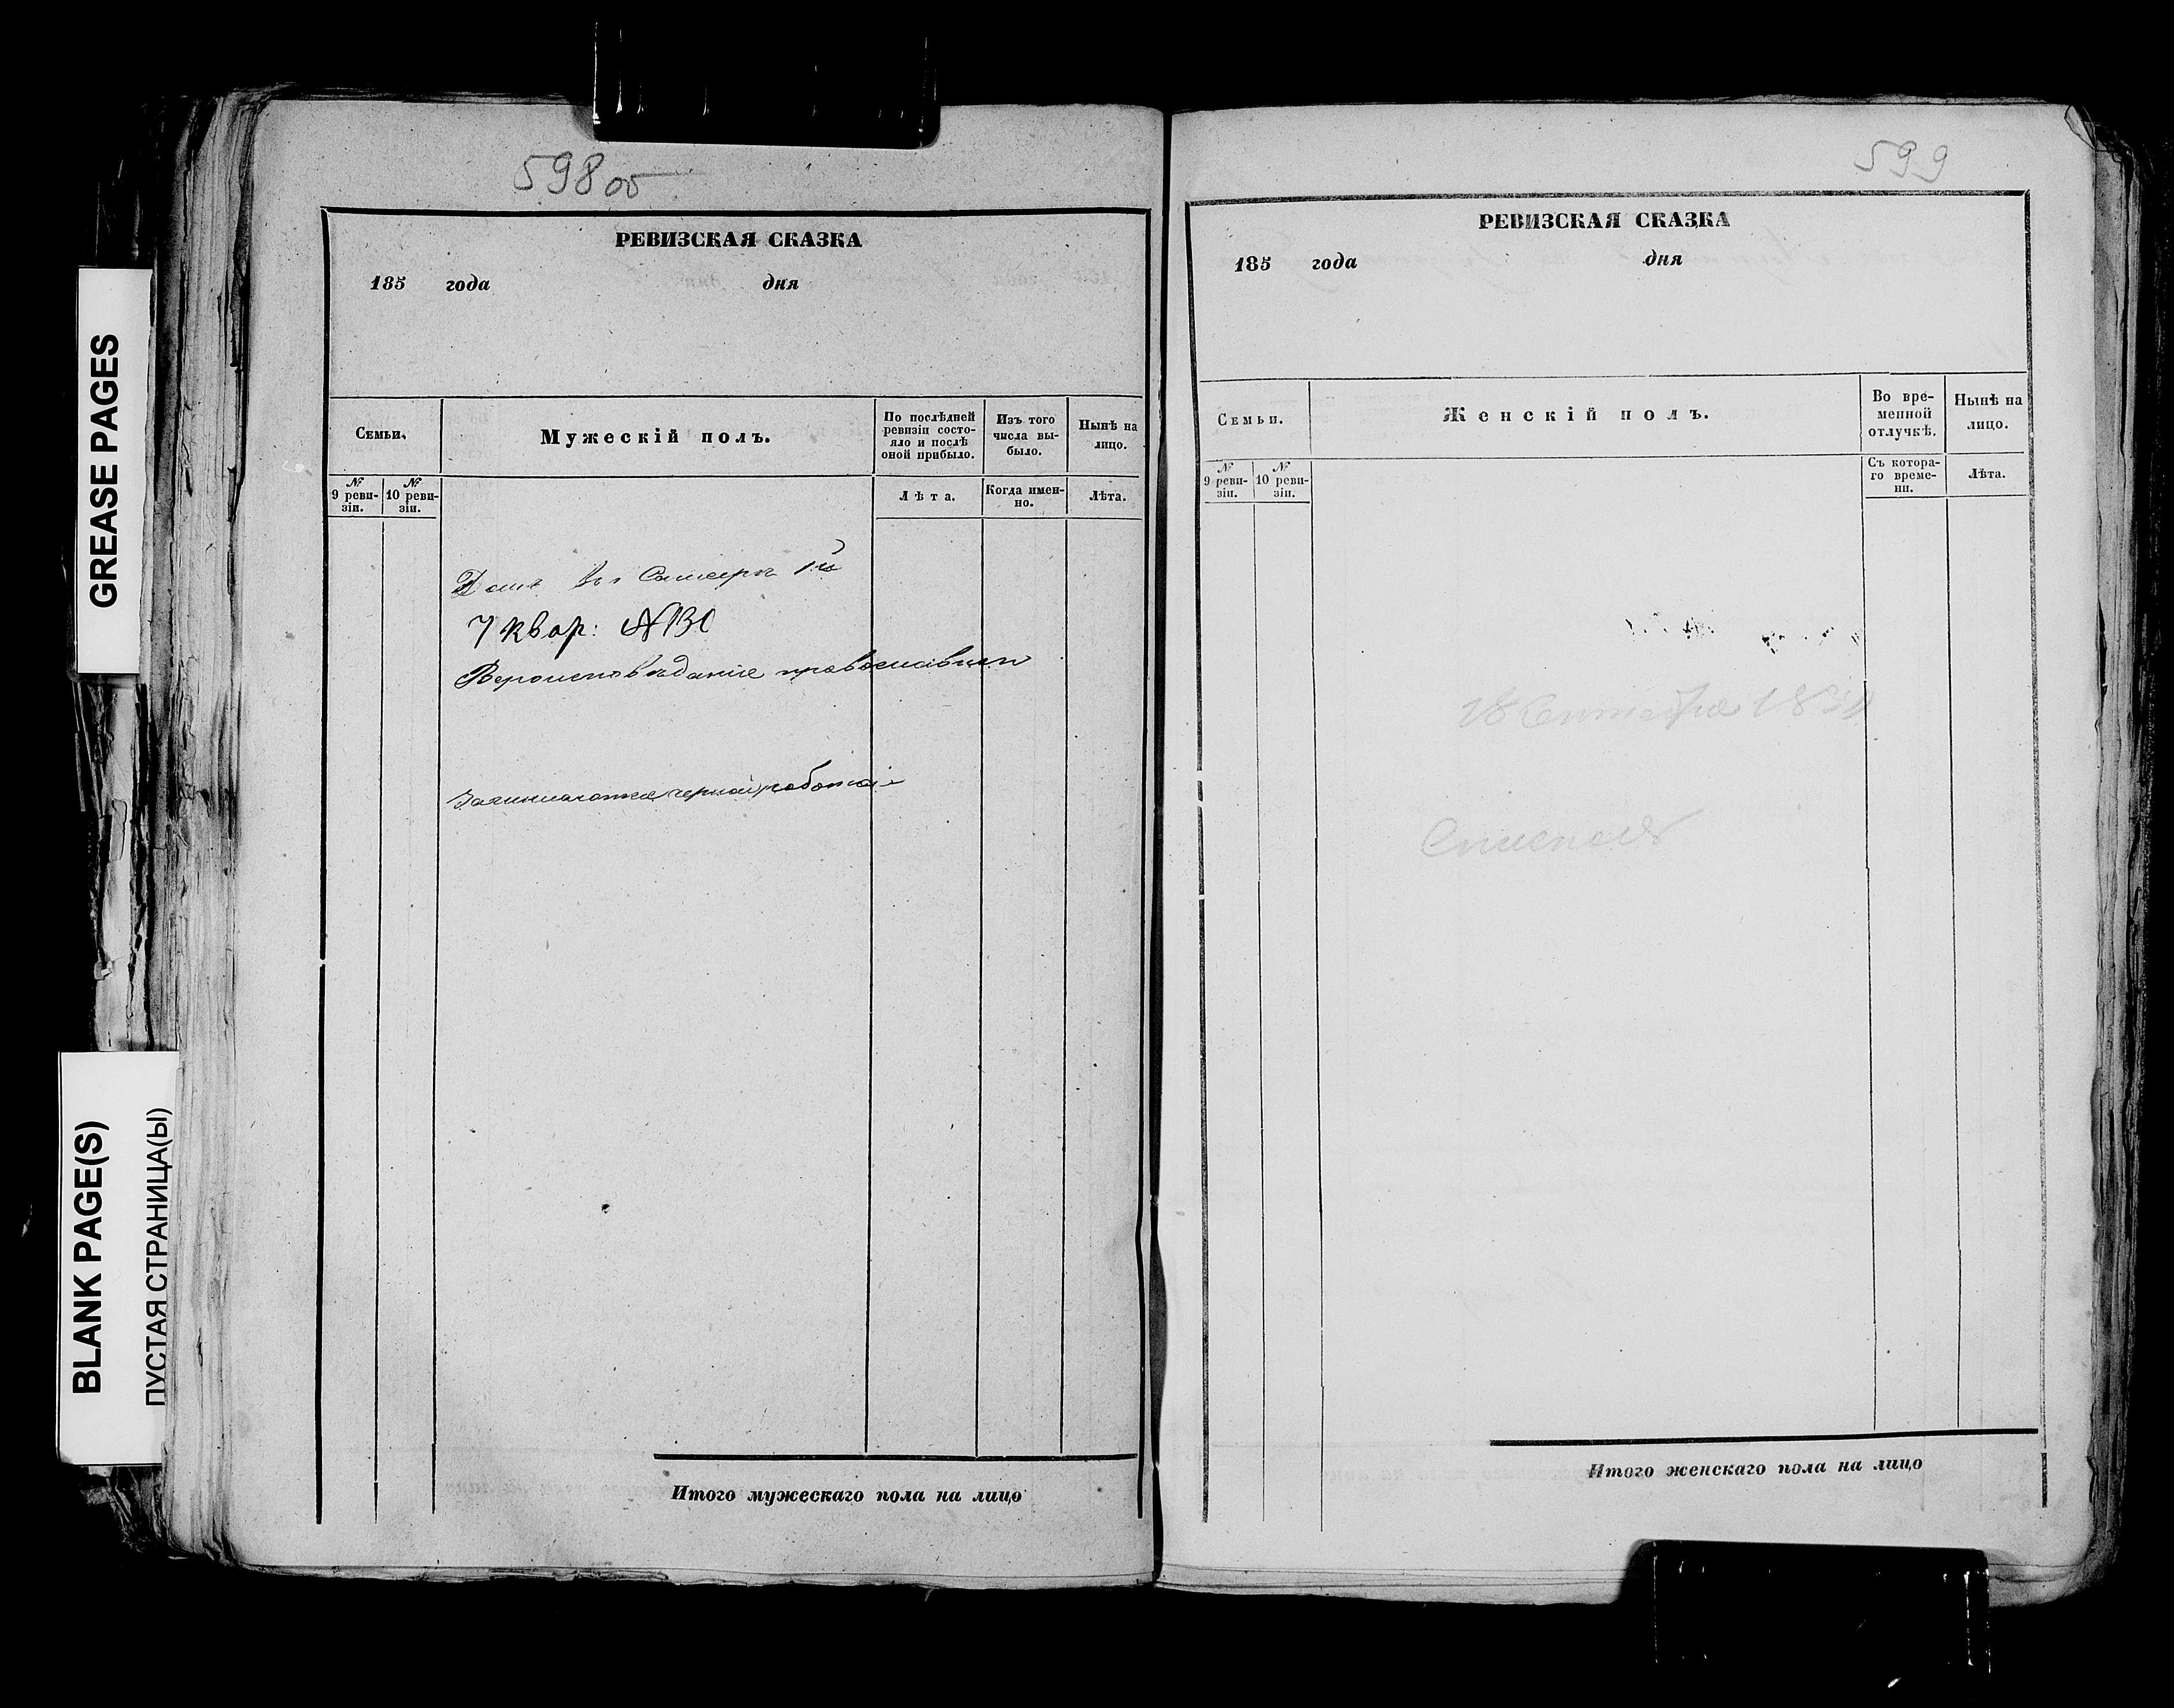 GREASE PAGES
BLANK PAGE(S)
ПУСТАЯ СТРАНИЦА(Ы)
598 об
РЕВИЗСКАЯ СКАЗКА
185 года дня
Семьи.
Мужескій полъ.
По послѣдней ревизіи состо-
яло и послѣ
оной прибыло.
Изъ того
числа вы-
было.
Нынѣ на
лицо.
№
9 реви-
зіи.
№
10 реви-
зіи.
Лѣта.
Когда имен-
но.
Лѣта.
Домъ въ 1й
7 квар: №
Вероисповѣданіе православнаго
черной работой
Итого мужескаго пола на лицо
599
РЕВИЗСКАЯ СКАЗКА
185 года дня
Семьи.
Женскій полъ.
Во вре-
менной
отлучкѣ.
Нынѣ на
лицо.
№
9 реви-
зіи.
№
10 реви-
зіи.
Съ котора-
го време-
ни.
Лѣта.
Итого женскаго пола на лицо